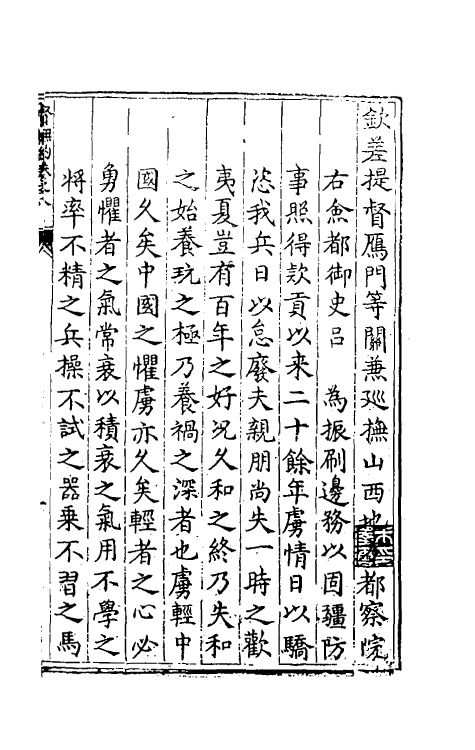 欽差提督鴈門等關兼巡撫山西地都察院
右僉都御史呂　為振刷邊務以固疆防
事照得欵貢以來二十餘年虜情日以驕
恣我兵日以怠廢夫親朋尚失一時之歡
夷夏豈有百年之好況久和之終乃失和
之始養玩之極乃養禍之深者也虜輕中
國久矣中國之懼虜亦久矣輕者之心必
勇懼者之氣常衰以積衰之氣用不學之
將率不精之兵操不試之器乗不習之馬
卷之八